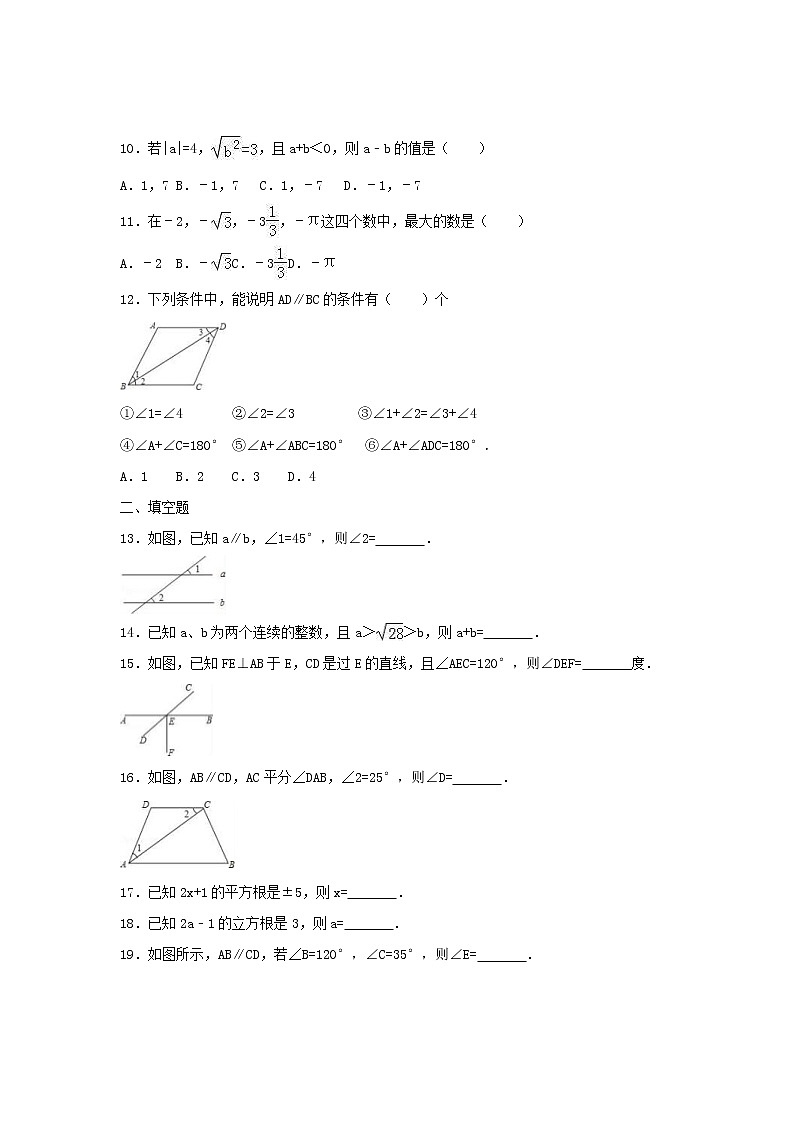 10.若|a|=4,√b²=3,且a+b<0,则a﹣b的值是(  )
A.1,7 B.﹣1,7 C.1,﹣7 D.﹣1,﹣7
11.在﹣2,﹣√3,﹣31/3,﹣π这四个数中,最大的数是(  )
A.﹣2 B.﹣√3C.﹣31/3D.﹣π
12.下列条件中,能说明AD∥BC的条件有(  )个
A D
3
4
1
2
B C
①∠1=∠4 ②∠2=∠3 ③∠1+∠2=∠3+∠4
④∠A+∠C=180° ⑤∠A+∠ABC=180° ⑥∠A+∠ADC=180°.
A.1 B.2 C.3 D.4
二、填空题
13.如图,已知a∥b,∠1=45°,则∠2=_______.
1 a
2 b
14.已知a、b为两个连续的整数,且a>√28>b,则a+b=_______.
15.如图,已知FE⊥AB于E,CD是过E的直线,且∠AEC=120°,则∠DEF=_______度.
C
A E B
D
F
16.如图,AB∥CD,AC平分∠DAB,∠2=25°,则∠D=_______.
D C
2
1
A B
17.已知2x+1的平方根是±5,则x=_______.
18.已知2a﹣1的立方根是3,则a=_______.
19.如图所示,AB∥CD,若∠B=120°,∠C=35°,则∠E=_______.